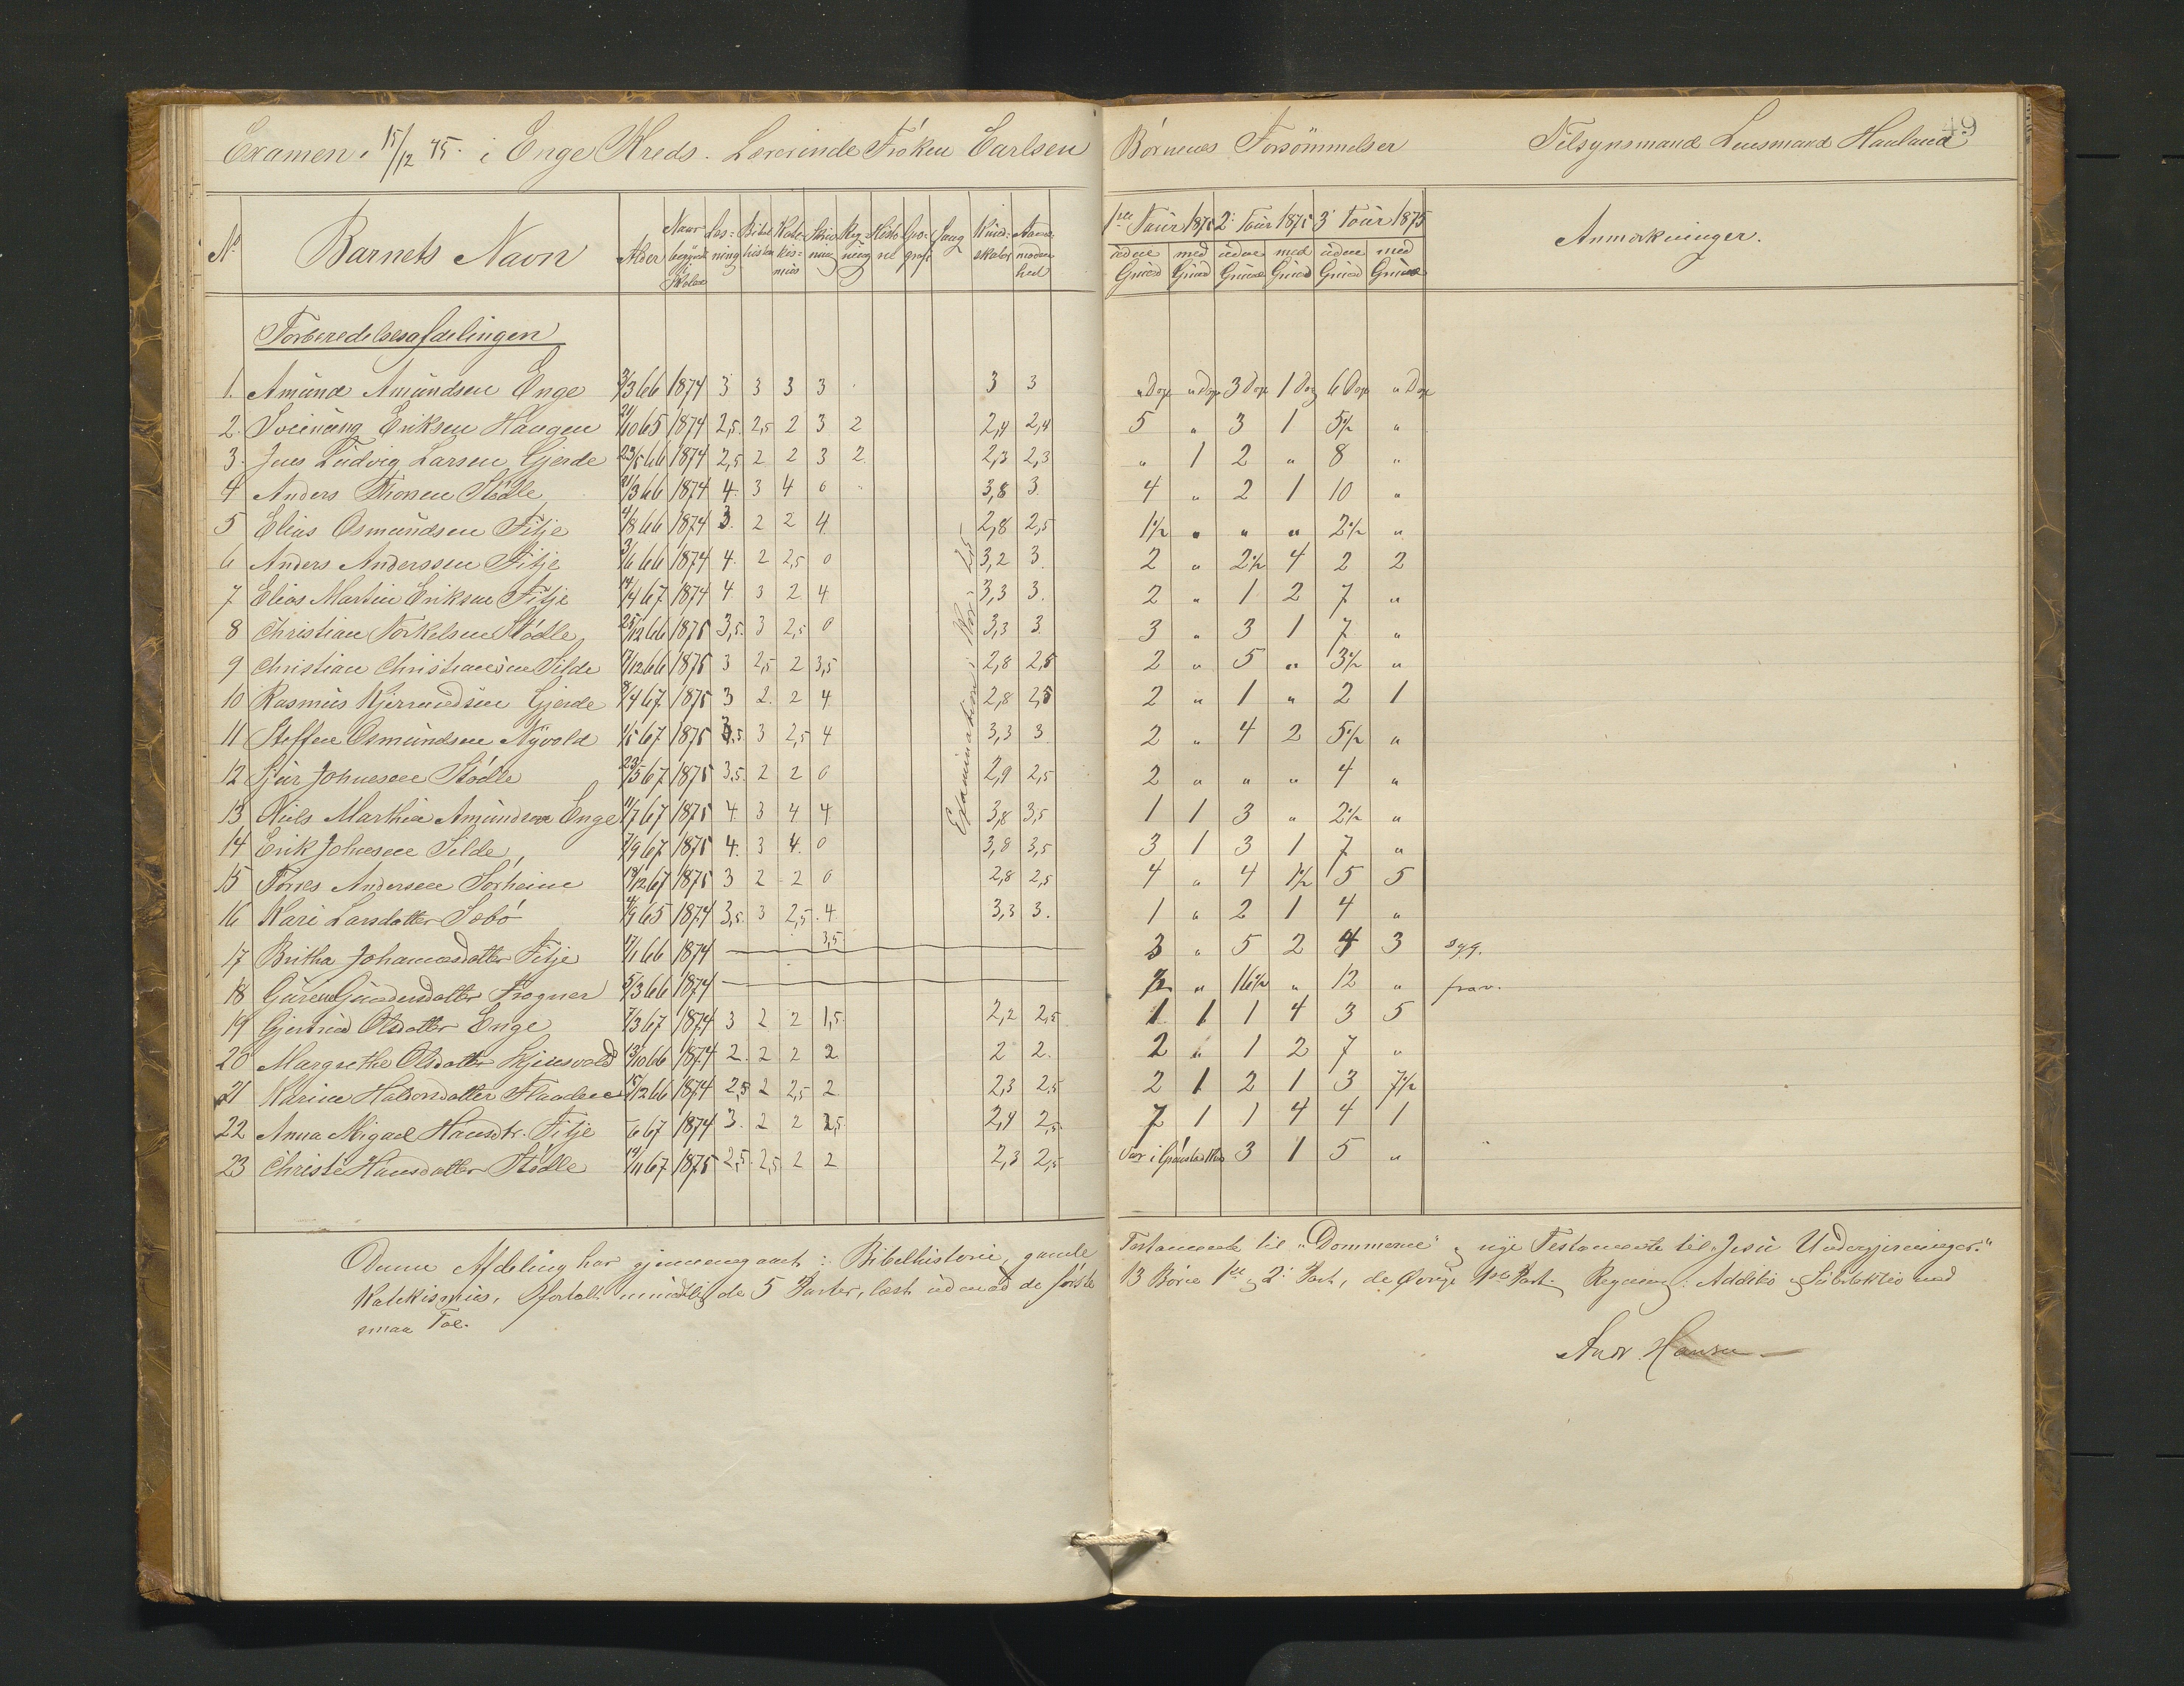 Examen 15/12 75. i Enge Kreds. Lærerinde Fröken Carlsen
Börnenes Forsömmelser Tilsynsmand Lensmand Hauland
49
No Barnets Navn Alder Naar begyndt i Skolen Læs=ning Bibelhistor Kate-kis=mus Skriv-ning Reg-ning Histo-rie Geo-grafi Sang Kund-skaber Aand-moden-hed
1ste Tour 1875 2: Tour 1875 3 Tour 1875 Anmærkninger.
uden Grund med Grund uden Grund med Grund uden Grund med Grund
Forberedelsesafdelingen
1. Amund Amundsen Enge 3/3 66 1874 3 3 3 3 3 3 " Dage " Dage 3 Dage 1 Dag 6 Dage " Dage
2. Sveinung Eriksen Haugen 21/10 65 1874 2,5 2,5 2 3 2 2,4 2,4 5 " 3 1 5½ "
3. Jens Ludvig Larsen Gjerde 23/5 66 1874 2,5 2 2 3 2 2,3 2,3 " 1 2 " 8 "
4 Anders Thorsen Stödle 21/3 66 1874 4 3 4 0 3,8 3 4 " 2 1 10 "
5 Elias Osmundsen Fitje 4/8 66 1874 3 2 2 4 2,8 2,5 1½ " " " 2½ "
6 Anders Anderssen Fitje 3/6 66 1874 4 2 2,5 0 3,2 3 2 " 2½ 4 2 2
7 Elias Martin Eriksen Fitje 14/4 67 1874 4 3 2 4 3,3 3. 2 " 1 2 7 "
8 Christian Torkelsen Stödle 25/12 66 1875 3,5 3 2,5 0 3,3 3 3 " 3 1 7 "
9 Christian Christiansen Silde 7/12 66 1875 3 2,5 2 3,5 2,8 2,5 2 " 5 " 3½ "
10 Rasmus Gjerde 8/4 67 1875 3 2 2 4 2,8 2,5 2 " 1 " 2 1
11 Steffen Osmundsen Nyvold 1/5 67 1875 3,5 3 2,5 4 3,3 3 2 " 4 2 5½ "
12 Sjur Johnesen Stödle 23/5 67 1875 3,5 2 2 0 2,9 2,5 2 " " " 4 "
13 Niels Marthin Amundsen Enge 11/7 67 1875 4 3 4 4 3,8 3,5 1 1 3 " 2½ "
14 Erik Johnesen Silde 7/9 67 1875 4 3 4 0 3,8 3,5 3 1 3 1 7 "
15 Torres Andersen Sörheim 19/12 67 1875 3 2 2 0 2,8 2,5 4 " 4 1½ 5 5
16 Kari Larsdatter Sebö 4/3 65 1874 3,5 3 2,5 4 3,3 3. 1 " 2 1 4 "
17 Britha Johannesdatter Fitje 17/1 66 1874 3,5 3 " 5 2 4 3 syg.
18 Guren Gundersdatter Frogner 5/3 66 1874 ½ " 16½ " 12 " frav.
19 Gjertrud Olsdatter Enge 7/3 67 1874 3 2 2 1,5 2,2 2,5 1 1 1 4 3 5
20 Margrethe Olsdatter Skjensvold 13/10 66 1874 2 2 2 2 2 2. 2 " 1 2 7 "
21 Karine Haldorsdatter Flaaden 15/12 66 1874 2,5 2 2,5 2 2,3 2,5 2 1 2 1 3 7½
22 Anna Migael Hansdtr. Fitje 6 67 1874 3 2 2 2,5 2,4 2,5 7 1 1 4 4 1
23 Christi Hansdatter Stödle 19/11 67 1875 2,5 2,5 2 2 2,3 2,5 Var i 3 1 5 "
Examination: Kor: 2,5
Denne Afdeling har gjennemgaaet: Bibelhistorie, gamle Testamente til "Dommerne" og nye Testamente til "Jesu Undergjerninger."
Katekismus, fortalt mundtlig de 5 Parter, læst udenad de förste 13 Börn 1ste og 2: Part, de Övrige 1ste Part. Regning: Additio og Subtraktio med
smaa Tal.
Andr. Hansen